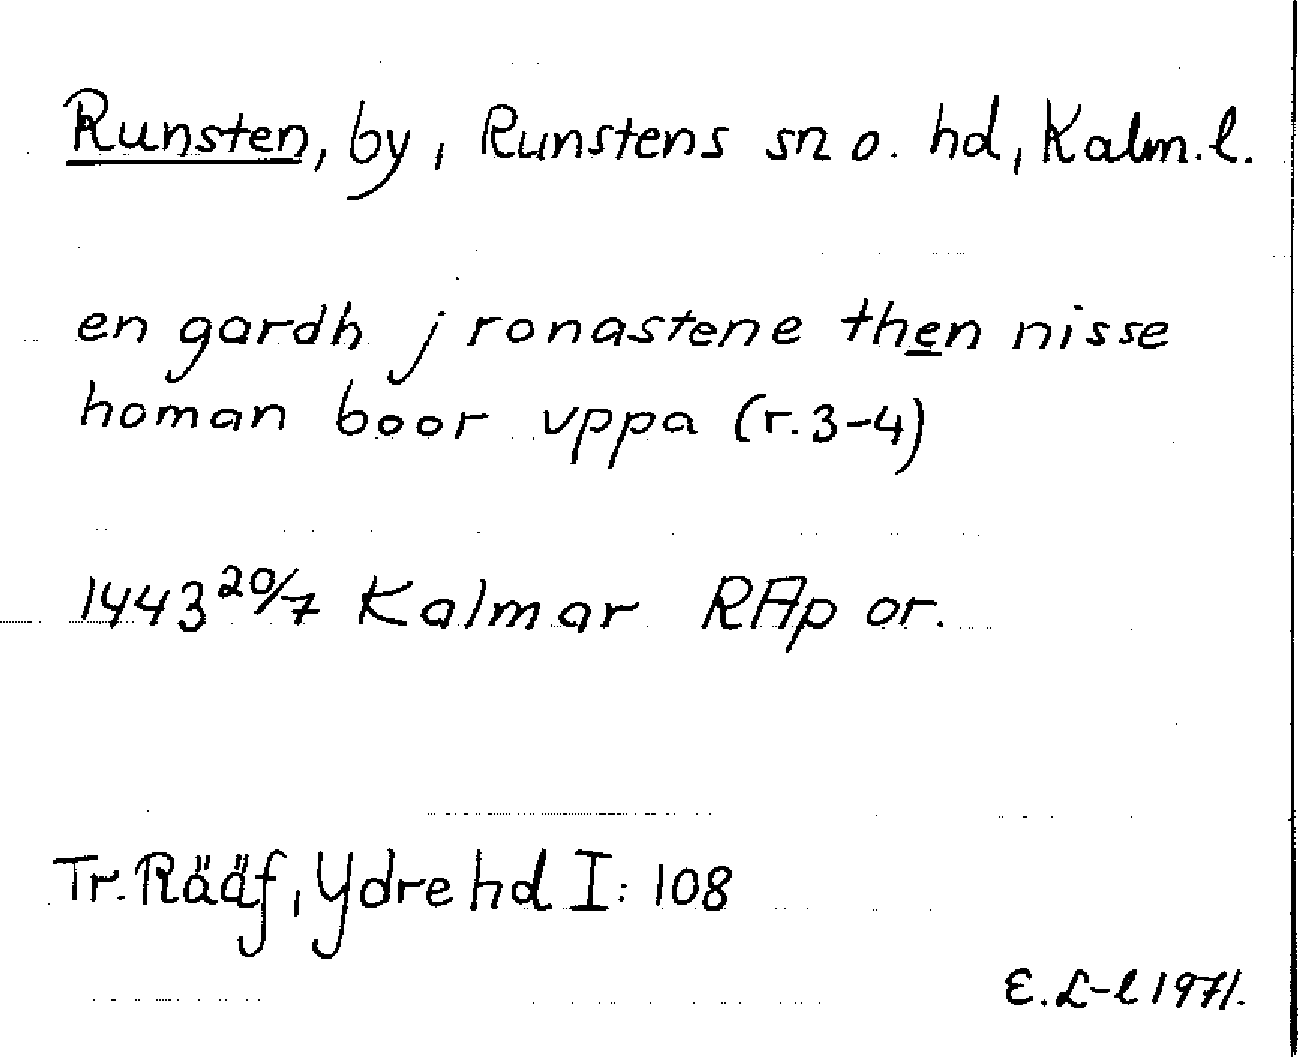 Runsten, by, Runstens sn o. hd, Kalm. l.
en gardh j ronastene then nisse
homan boor vppa (r. 3-4)
1443 20/7 Kalmar RAp or.
Tr. Rääf, Ydre hd I: 108
E. L-l 1971.